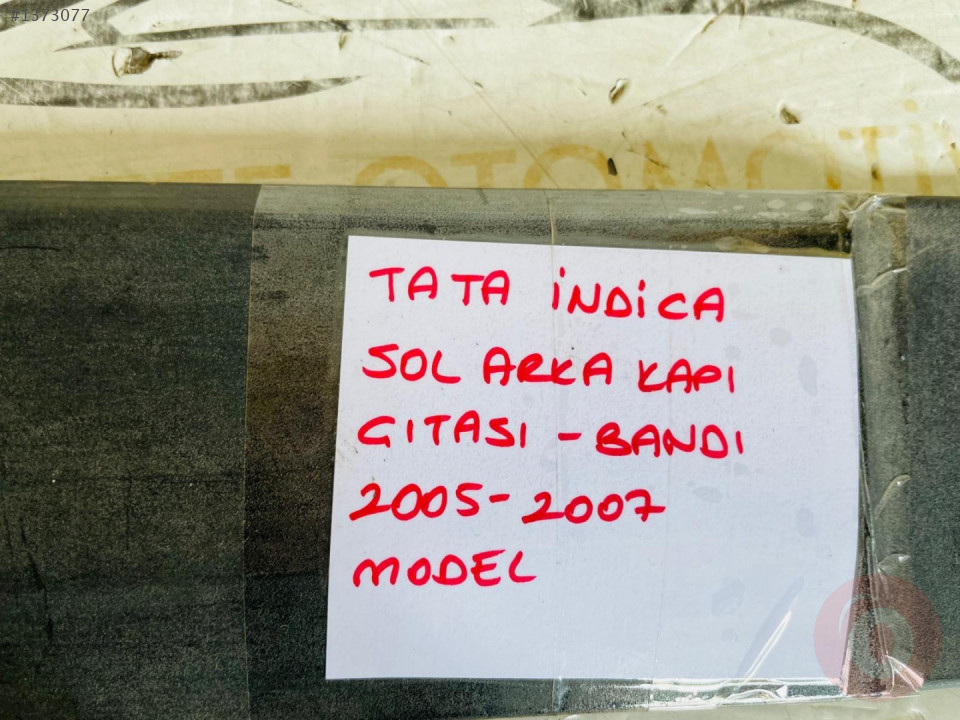 #1373077
OTOMOTİV
TATA İNDİCA
SOL ARKA KAPI
CITASI - BANDI
2005-2007
MODEL